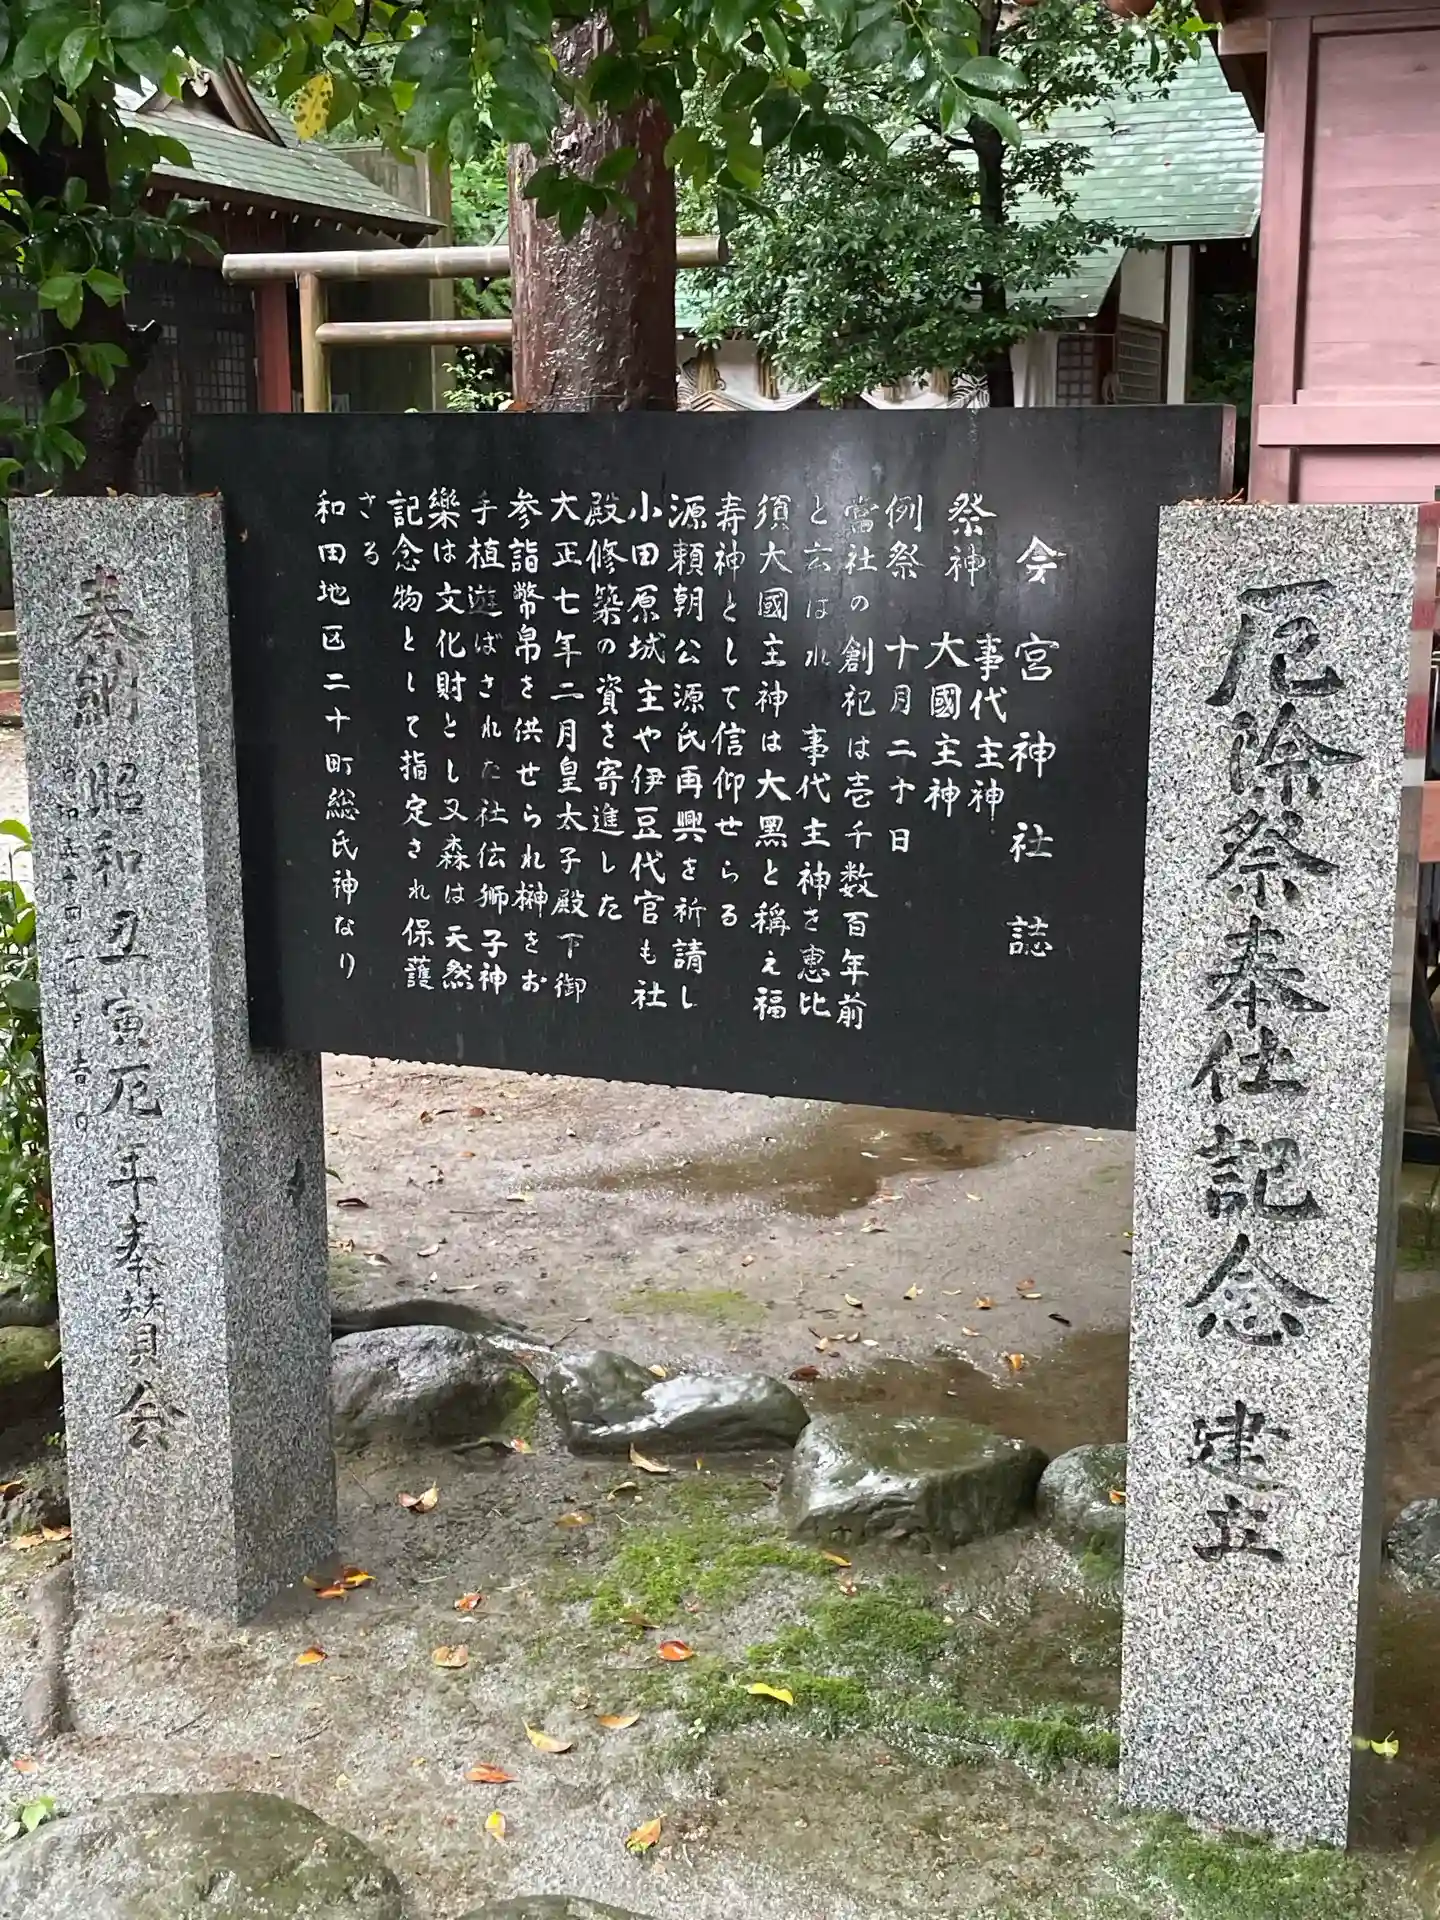 厄除祭奉仕記念 建立
今宮神社誌
祭神 事代主神
大國主神
例祭 十月二十日
當社の創祀は壱千数百年前
と云はれ 事代主神を恵比
須大國主神は大黑と稱え福
寿神として信仰せらる
源頼朝公源氏再興を祈請し
小田原城主や伊豆代官も社
殿修築の資を寄進した
大正七年二月皇太子殿下御
参詣幣帛を供せられ榊をお
手植遊ばされた社伝獅子神
樂は文化財とし又森は天然
記念物として指定され保護
さる
和田地区二十町総氏神なり
奉納 昭和丑寅厄年奉賛会
昭和五十四年十月吉日